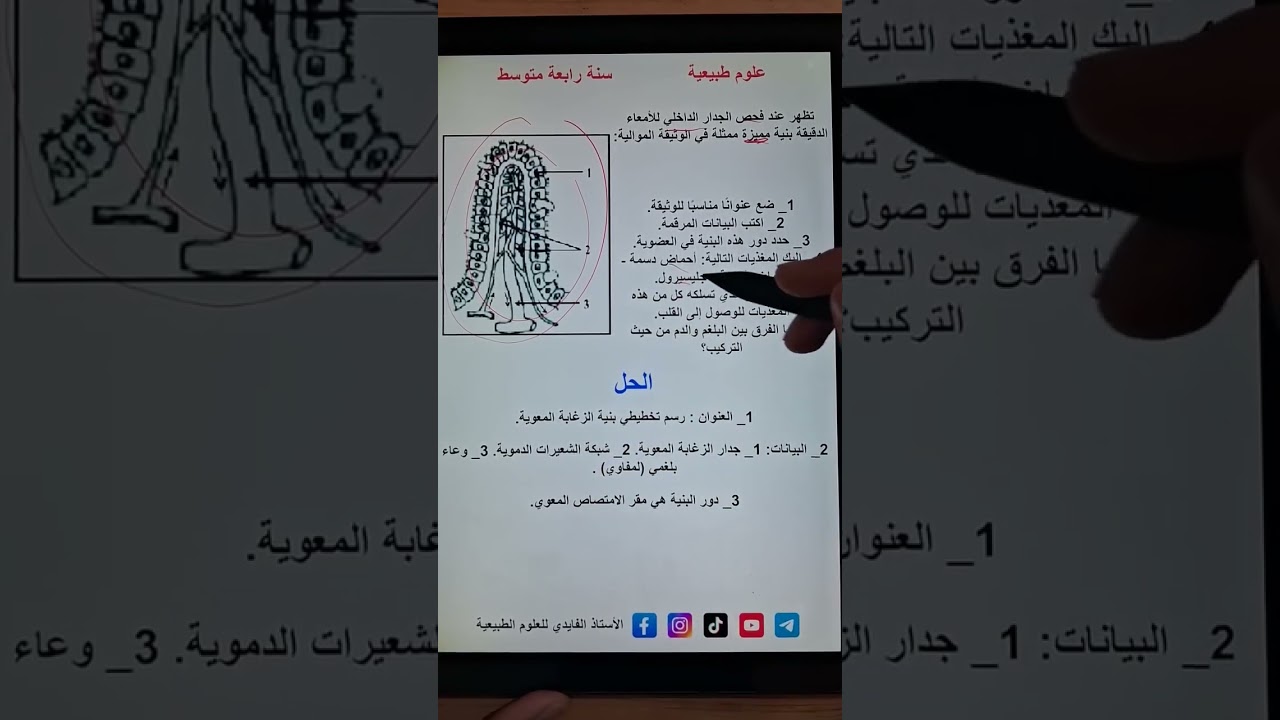 علوم طبيعية
سنة رابعة متوسط
تظهر عند فحص الجدار الداخلي للأمعاء
الدقيقة بنية مميزة ممثلة في الوثيقة الموالية:
1_ ضع عنوانًا مناسبًا للوثيقة.
2_ اكتب البيانات المرقمة.
3_ حدد دور هذه البنية في العضوية.
إليك المغذيات التالية: أحماض دسمة -
تسلكه كل من هذه
المغذيات للوصول إلى القلب.
الفرق بين البلغم والدم من حيث
التركيب؟
1
2
3
الحل
1_ العنوان : رسم تخطيطي بنية الزغابة المعوية.
2_ البيانات: 1_ جدار الزغابة المعوية. 2_ شبكة الشعيرات الدموية. 3_ وعاء
بلغمي (لمفاوي) .
3_ دور البنية هي مقر الامتصاص المعوي.
الأستاذ الفايدي للعلوم الطبيعية